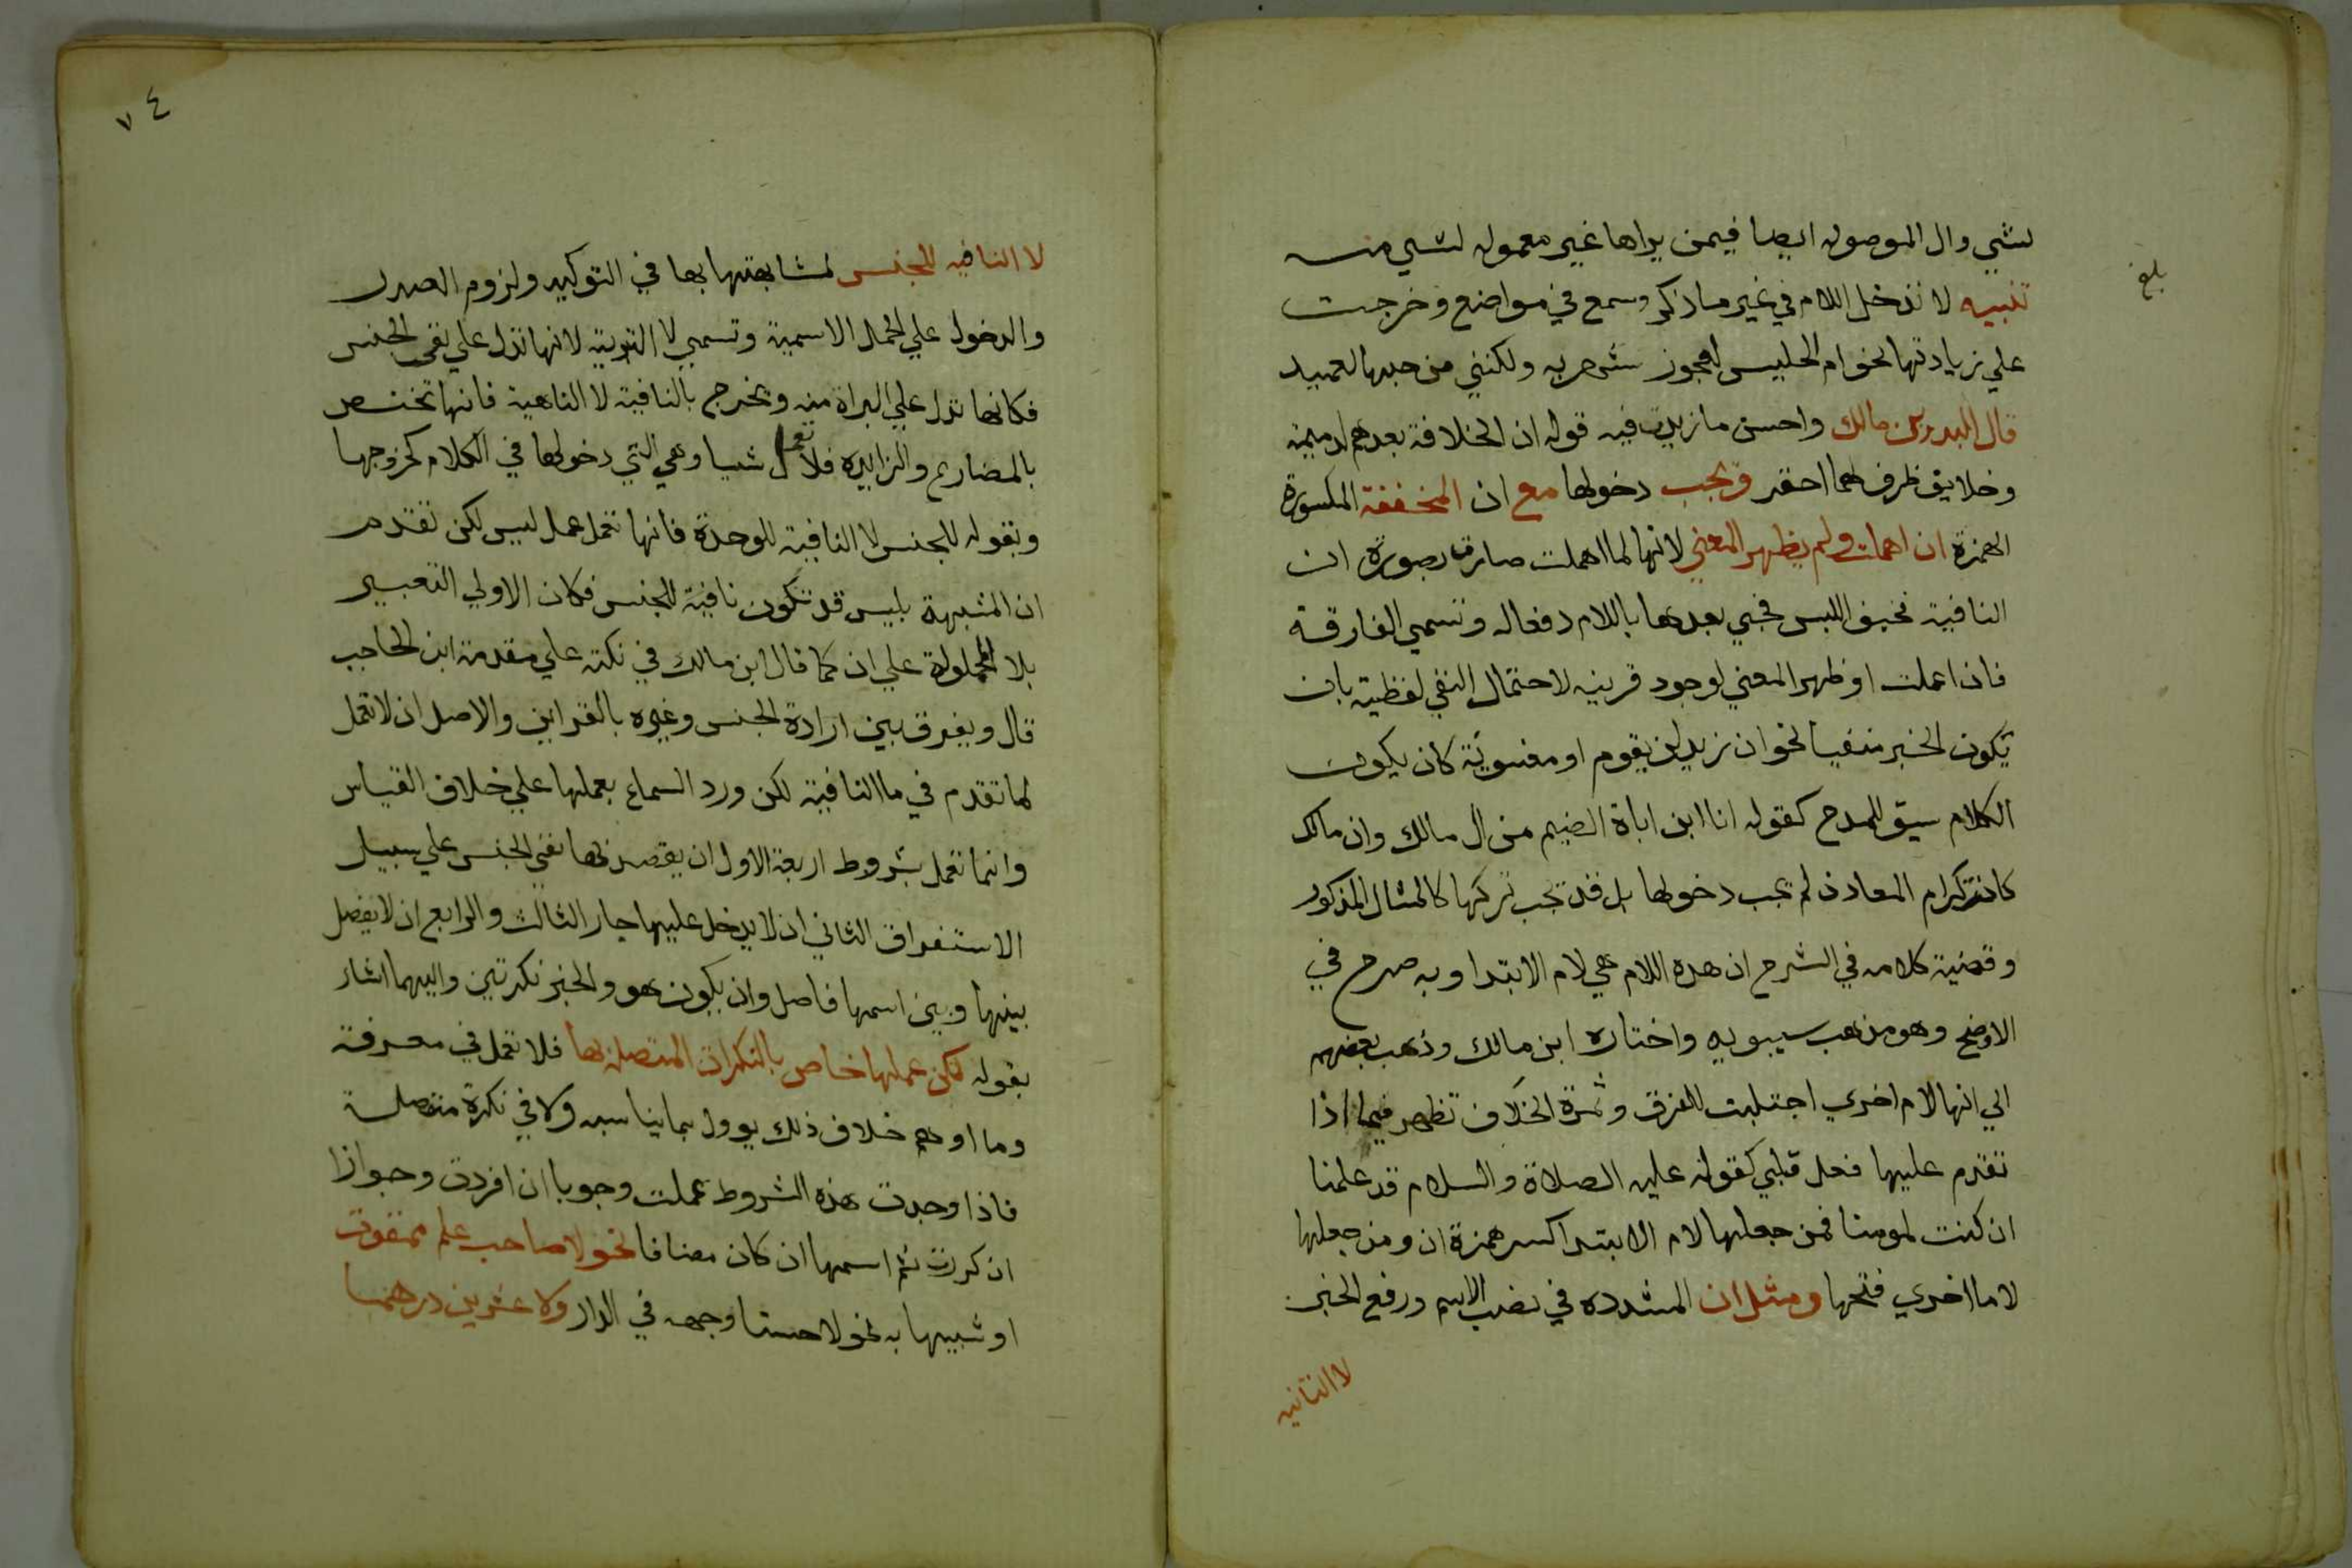 لشي وال الموصوله ايضا فيمن يراها غير معموله لشي منه
بلغ
تنبيه لا تدخل اللام في غير ما ذكر وسمع في مواضع وخرجت
علي زيادتها نحو ام الحليس لعجوز شهربه ولكنني من حبها لعميد
قال البدر بن مالك واحسن ما زيدت فيه قوله ان الخلافة بعدهم لدميمة
وخلايق ظرف لمما احقر وتجب دخولها مع ان المخففة المكسورة
الهمزة ان اهملت ولم يظهر المعني لانها لما اهملت صارت بصورة ان
النافية فخيف اللبس فجي بعدها باللام دفعا له وتسمي الفارقة
فان اعملت او ظهر المعني لوجود قرينه لاحتمال النفي لفظية بان
يكون الخبر منفيا نحو ان زيد لن يقوم او معنوية كان يكون
الكلام سيق للمدح كقوله انا ابن اباة الضيم من ال مالك وان مالك
كانت كرام المعادن لم تجب دخولها بل قد تجب تركها كالمثال المذكور
وقضية كلامه في الشرح ان هذه اللام هي لام الابتدا وبه صرح في
الاوضح وهو مذهب سيبويه واختاره ابن مالك وذهب بعضهم
الي انها لام اخري اجتلبت للفرق وثمرة الخلاف تظهر فيما اذا
تقدم عليها فعل قلبي كقوله عليه الصلاة والسلام قد علمنا
ان كنت لمومنا فمن جعلها لام الابتدا كسر همزة ان ومن جعلها
لاما اخري فتحها ومثل ان المشدده في نصب الاسم ورفع الخبر
لا النافيه
٧٤
لا النافيه للجنس لمشابهتها بها في التوكيد ولزوم الصدر
والدخول علي الجمل الاسمية وتسمي لا التبرية لانها تدل علي نفي الجنس
فكانها تدل علي البراة منه ويخرج بالنافية لا الناهية فانها تختص
بالمضارع والزايده فلا تعمل شيا وهي التي دخولها في الكلام كخروجها
وبقوله للجنس لا النافية للوحدة فانها تعمل عمل ليس لكن تقدم
ان المشبهة بليس قد تكون نافية للجنس فكان الاولي التعبير
بلا المحمولة علي ان كما قال ابن مالك في نكته علي مقدمة ابن الحاجب
قال ويفرق بين ارادة الجنس وغيره بالقراين والاصل ان لا تعمل
لما تقدم في ما النافية لكن ورد السماع بعملها علي خلاف القياس
وانما تعمل بشروط اربعة الاول ان يقصد بها نفي الجنس علي سبيل
الاستغراق الثاني ان لا يدخل عليها جار الثالث والرابع ان لا يفصل
بينها وبين اسمها فاصل وان يكون هو والخبر نكرتين واليهما اشار
بقوله لكن عملها خاص بالنكرات المتصلة بها فلا تعمل في معرفة
وما اوهم خلاف ذلك يوول بما يناسبه ولا في نكرة منفصلة
فاذا وجدت هذه الشروط عملت وجوبا ان افردت وجوازا
ان كررت ثم اسمها ان كان مضافا نحو لا صاحب علم ممقوت
او شبيها به نحو لا حسنا وجهه في الدار ولا عشرين درهما